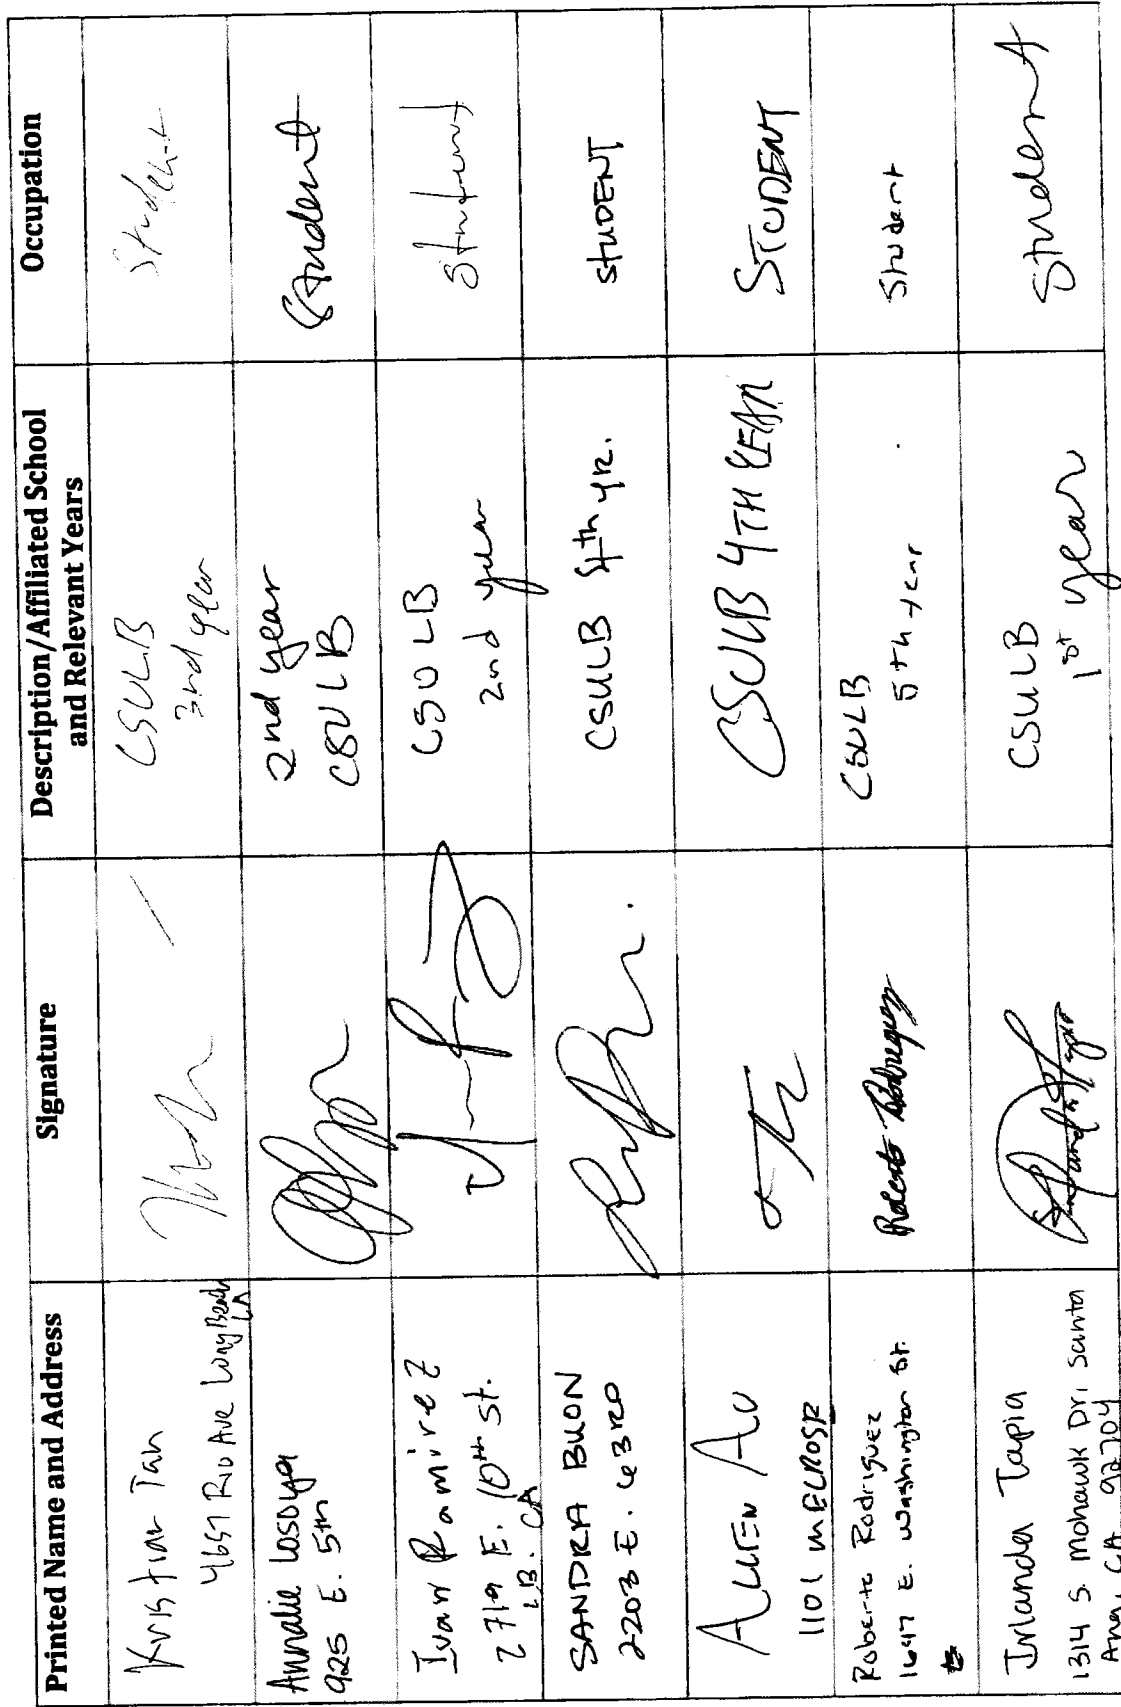 Printed Name and Address
Signature
Description/Affiliated School
and Relevant Years
Occupation
Kristian Tan
4657 Rio Ave Long Beach
CA
CSULB
3nd year
Student
Annalie Losoya
925 E. 5th
2nd year
CSULB
Student
Ivan Ramirez
2719 E. 10th St.
L.B. CA
CSULB
2nd year
Student
SANDRA BUON
2203 E. 63RD
CSULB 4th yr.
STUDENT
ALLEN AU
1101 MELROSE
CSULB 4TH YEAR
STUDENT
Roberto Rodriguez
1647 E. Washington St.
Roberto Rodriguez
CSULB
5th year
Student
Irlanda Tapia
1314 S. Mohawk Dr. Santa
Ana, CA 92704
CSULB
1st year
Student